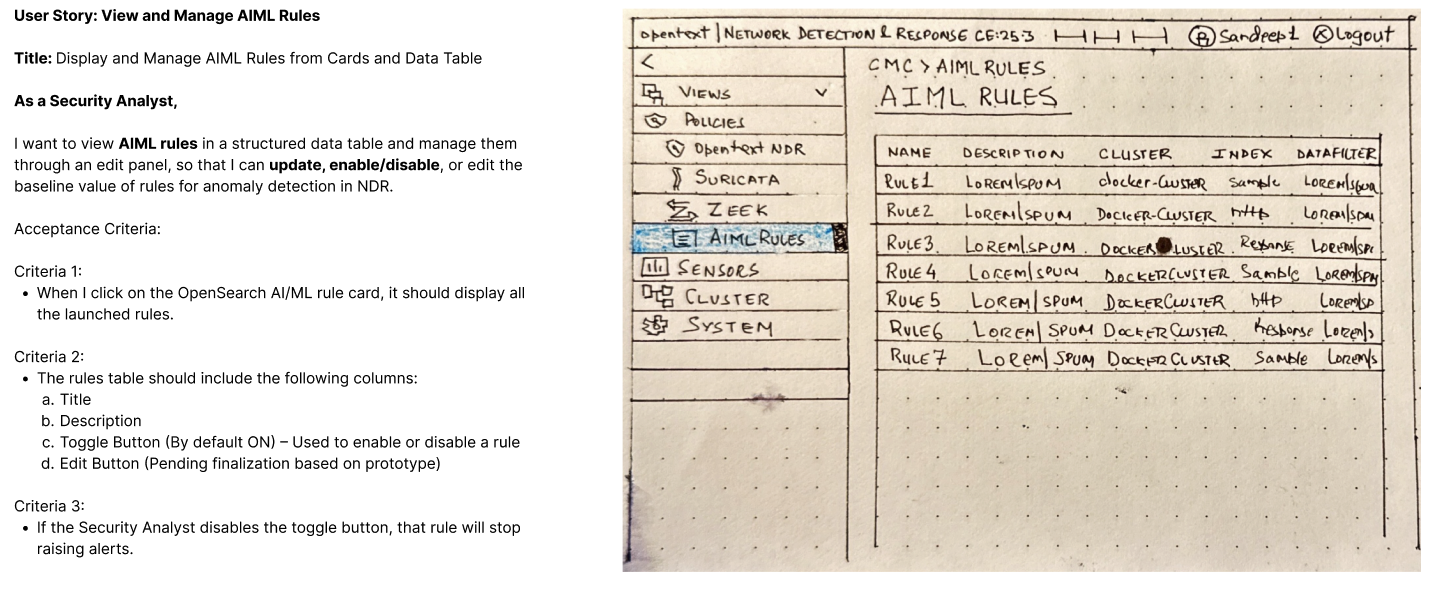 User Story: View and Manage AIML Rules
Title: Display and Manage AIML Rules from Cards and Data Table
As a Security Analyst,
I want to view AIML rules in a structured data table and manage them
through an edit panel, so that I can update, enable/disable, or edit the
baseline value of rules for anomaly detection in NDR.
Acceptance Criteria:
Criteria 1:
• When I click on the OpenSearch AI/ML rule card, it should display all
the launched rules.
Criteria 2:
• The rules table should include the following columns:
a. Title
b. Description
c. Toggle Button (By default ON) – Used to enable or disable a rule
d. Edit Button (Pending finalization based on prototype)
Criteria 3:
• If the Security Analyst disables the toggle button, that rule will stop
raising alerts.
opentext | NETWORK DETECTION & RESPONSE CE:25.3 Sandeep1 Logout
<
VIEWS
POLICIES
Opentext NDR
SURICATA
ZEEK
AIML RULES
SENSORS
CLUSTER
SYSTEM
CMC > AIML RULES
AIML RULES
NAME DESCRIPTION CLUSTER INDEX DATAFILTER
RULE1 LOREM|SPUM docker-CLUSTER Sample LOREM|SPUM
RULE2 LOREM|SPUM DOCKER-CLUSTER http LOREM|SPU
RULE3 LOREM|SPUM DOCKER LUSTER Response LOREM|SP
RULE4 LOREM|SPUM DOCKERCLUSTER Sample LOREM|SPM
RULE5 LOREM|SPUM DOCKERCLUSTER http LOREM|SP
RULE6 LOREM|SPUM DOCKERCLUSTER Response LOREM|S
RULE7 LOREM|SPUM DOCKERCLUSTER Sample LOREM|S